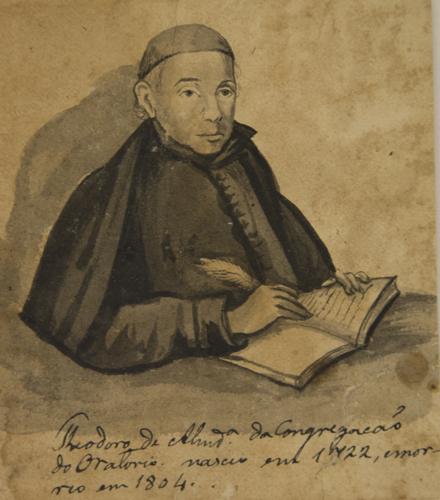 Theodoro de Almd.ª da Congregacaõ
do Oratorio. nasceo em 1722, e mor-
reo em 1804.